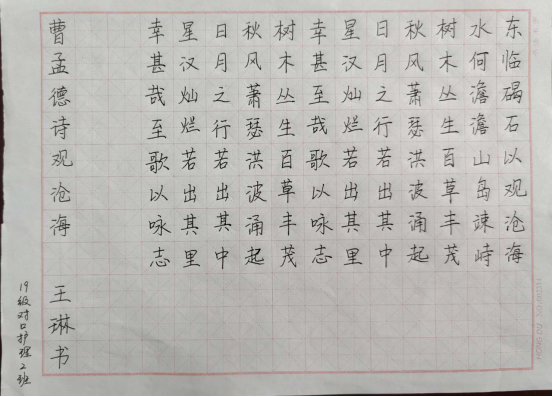 东临碣石以观沧海
水何澹澹山岛竦峙
树木丛生百草丰茂
秋风萧瑟洪波涌起
日月之行若出其中
星汉灿烂若出其里
幸甚至哉歌以咏志
树木丛生百草丰茂
秋风萧瑟洪波涌起
日月之行若出其中
星汉灿烂若出其里
幸甚哉至歌以咏志
曹孟德诗观沧海 王琳书
19级对口护理2班
HONG DU